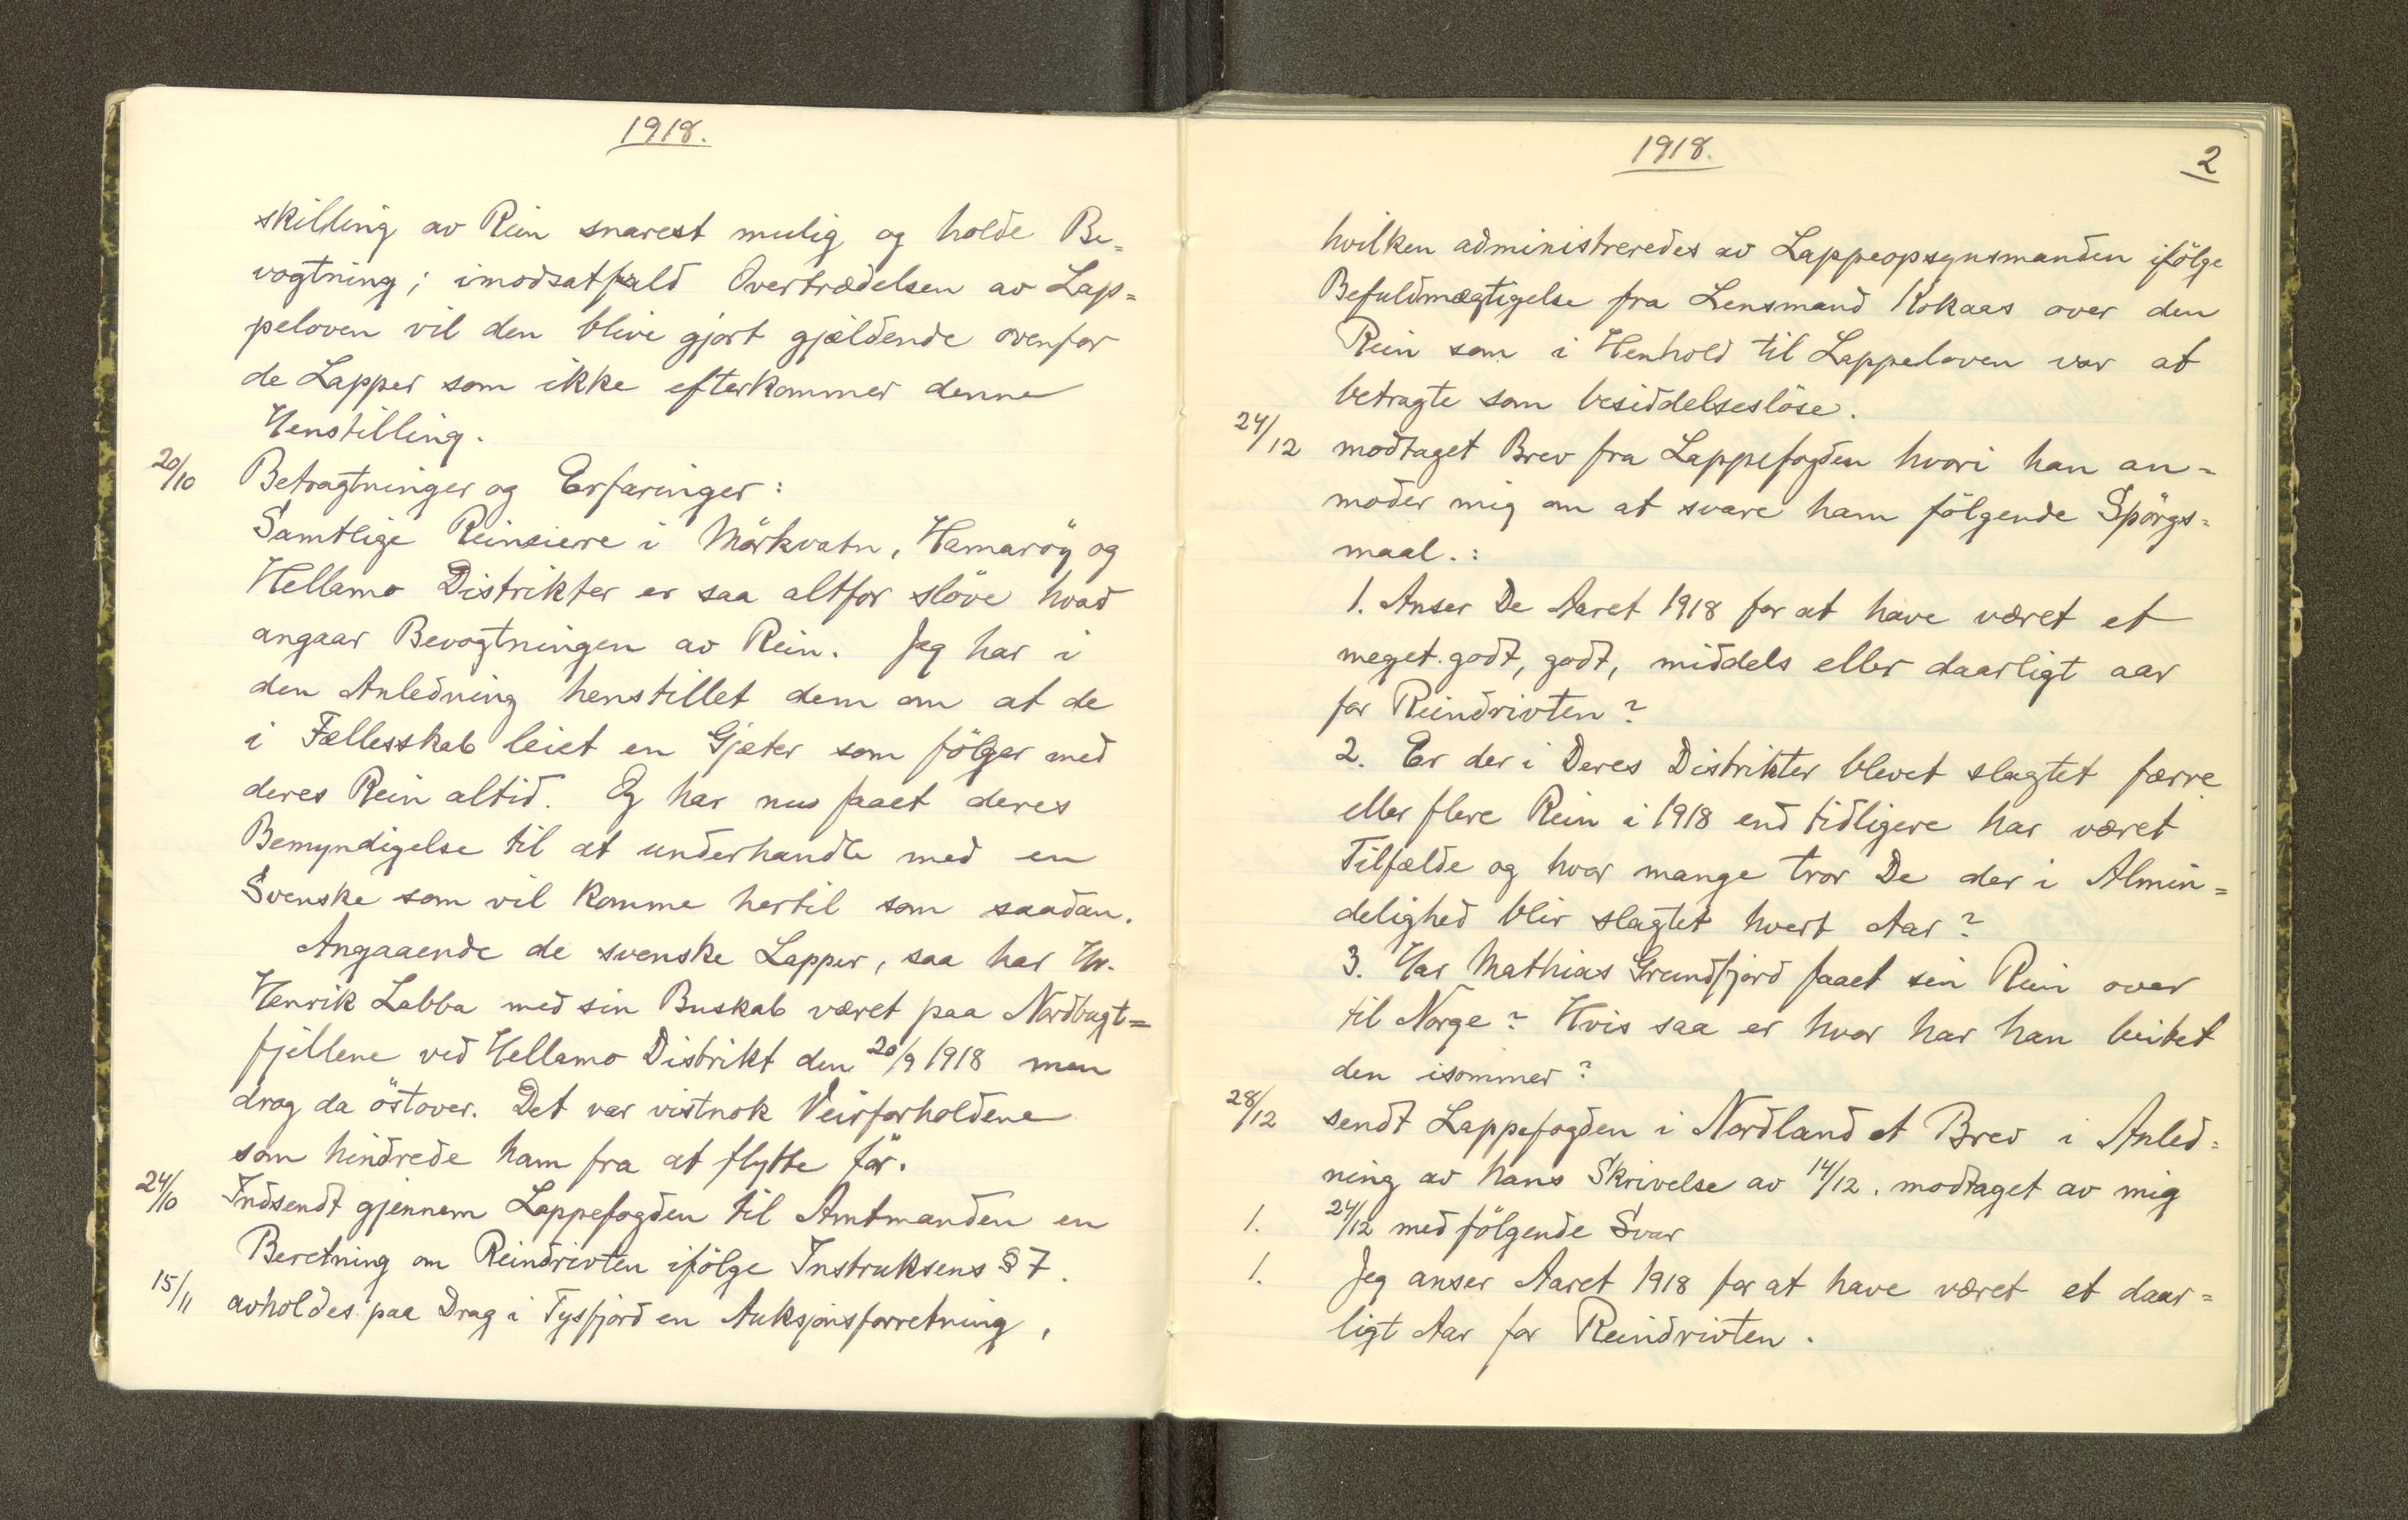 1918.
skilling av Rein snarest mulig og holde Be=
vogtning; imodsatfald Overtrædelsen av Lap=
peloven vil den blive gjort gjældende ovenfor
de Lapper som ikke efterkommer denne
Henstilling.
20/10 Betragtninger og Erfaringer:
Samtlige Reinsiere i Mörkvatn, Hamaröy og
Hellamo Distrikter er saa altfor slöve hvad
angaar Bevogtningen av Rein. Jeg har i
den Anledning henstillet dem om at de
i Fællesskab leiet en Gjæter som fölger med
deres Rein altid. Og har nu faaet deres
Bemyndigelse til at underhandle med en
Svenske som vil komme hertil som saadan.
Angaaende de svenske Lapper, saa har Hr.
Henrik Labba med sin Buskab været paa Nordbugt=
fjellene ved Hellamo Distrikt den 20/9 1918 men
drog da östover. Det var vistnok Veirforholdene
som hindrede ham fra at flytte för.
24/10 Indsendt gjennem Lappefogden til Amtmanden en
Beretning om Reindrivten ifölge Instruksens § 7.
15/11 avholdes paa Drag i Tysfjord en Auksjonsforretning,
1918.
2
hvilken administreredes av Lappeopsynsmanden ifölge
Befuldmægtigelse fra Lensmand Kokaas over den
Rein som i Henhold til Lappeloven var at
betragte som besiddelseslöse.
24/12 modtaget Brev fra Lappefogden hvori han an=
moder mig om at svare ham fölgende Spörgs=
maal.:
1. Anser De Aaret 1918 for at have været et
meget godt, godt, middels eller daarligt aar
for Reindrivten?
2. Er der i Deres Distrikter blevet slagtet færre
eller flere Rein i 1918 end tidligere har været
Tilfælde og hvor mange tror De der i Almin=
delighed blir slagtet hvert Aar?
3. Har Mathias Grundfjord faaet sin Rein over
til Norge? Hvis saa er hvor har han beitet
den isommer?
28/12 sendt Lappefogden i Nordland et Brev i Anled=
ning av hans Skrivelse av 14/12. modtaget av mig
1. 24/12 med fölgende Svar
1. Jeg anser Aaret 1918 for at have været et daar=
ligt Aar for Reindrivten.